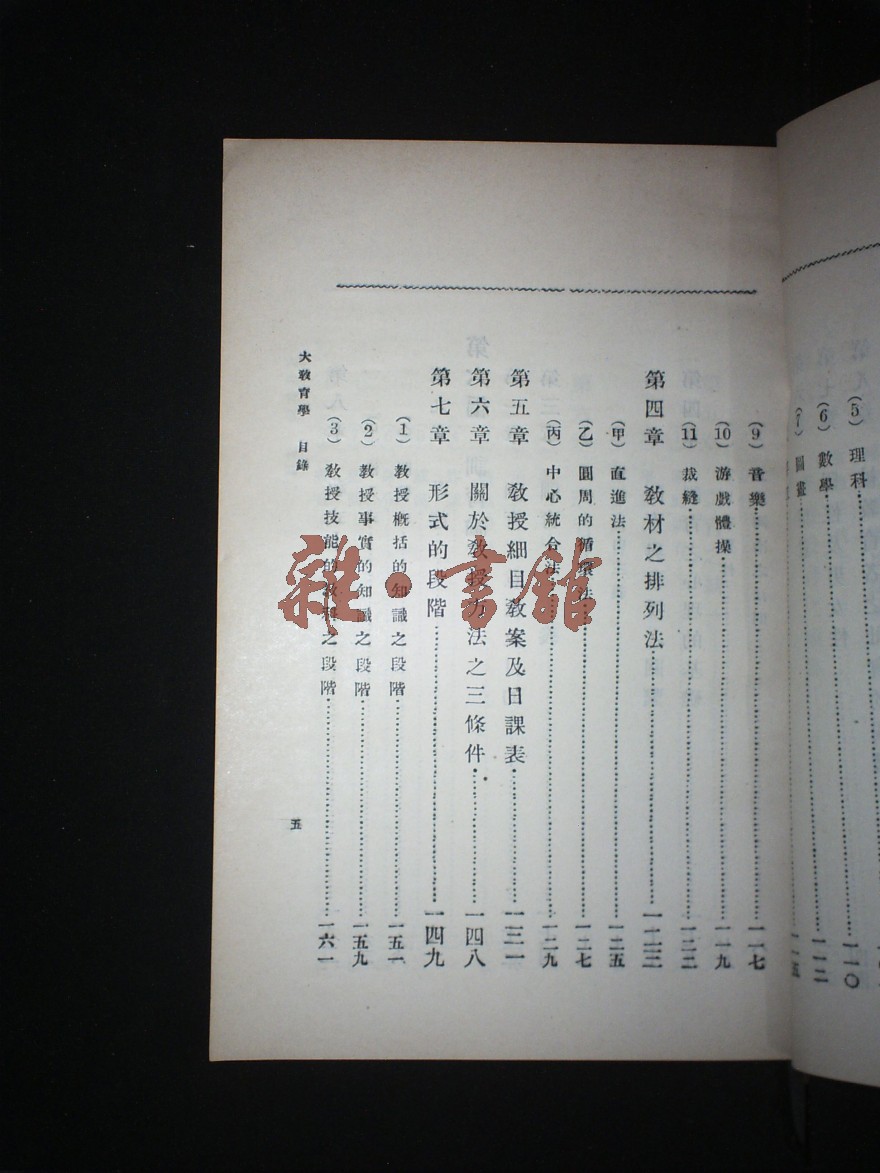 (5) 理科 一一〇
(6) 數學 一一二
(7) 圖畫 一一五
(9) 音樂 一一七
(10) 游戲體操 一一九
(11) 裁縫 一二二
第四章 教材之排列法 一二三
(甲) 直進法 一二五
(乙) 圓周的循環法 一二七
(丙) 中心統合法 一二九
第五章 教授細目教案及日課表 一三一
第六章 關於教授方法之三條件 一四八
第七章 形式的段階 一四九
(1) 教授概括的知識之段階 一五一
(2) 教授事實的知識之段階 一五九
(3) 教授技能的教科之段階 一六一
大教育學 目錄 五
雜·書館